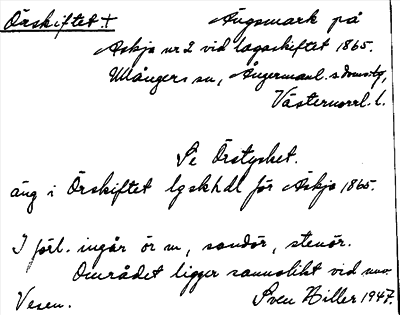 Örskiftet + Ängsmark på
Äskja nr 2 vid lagaskiftet 1865.
Ullångers sn, Ångermanl. s. domsg,
Västernorrl. l.
Se Örstycket.
äng i Örskiftet lgskhdl för Äskja 1865.
I förl. ingår ör m, sandör, stenör.
Området ligger sannolikt vid nuv.
Veåen. Sven Hiller 1947.